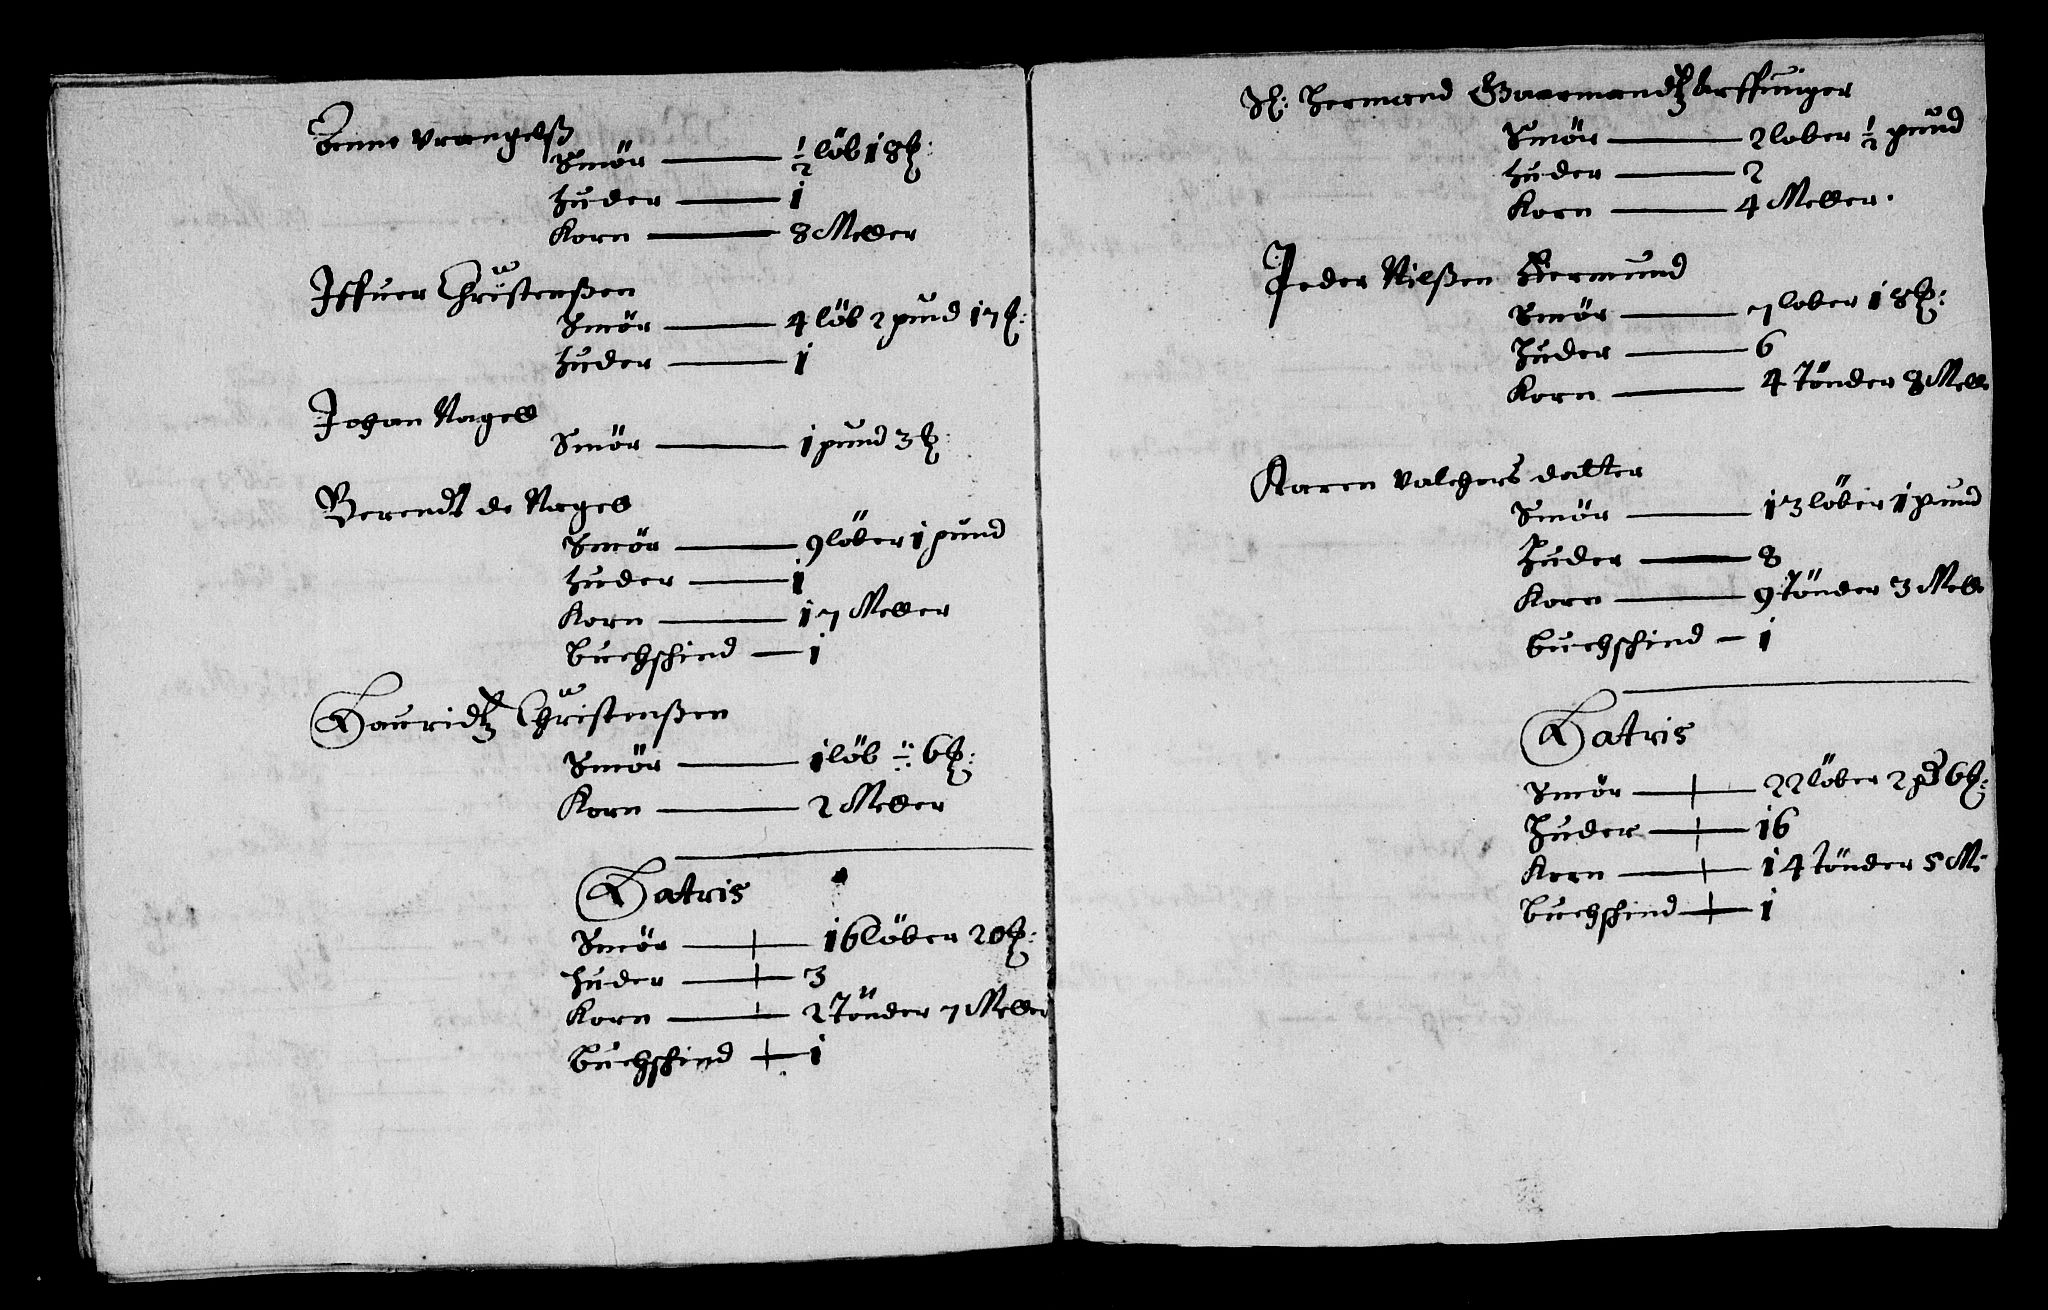 Vrangelß
Smör — ½ löb 18 ℔:
Huder — 1
Korn — 8 Meller
Iffuer Christenßen
Smör — 4 löb 2 pund 17 ℔:
Huder — 1
Johan Nagell
Smör — 1 pund 3 ℔:
Berendt de Nagel
Smör — 9 löber 1 pund
Huder — 1
Korn — 17 Meller
Buchschind — 1
Lauridtz Christenßen
Smör — 1 löb 6 ℔:
Korn — 2 Meller
Latris
Smör — 16 löber 20 ℔:
Huder — 3
Korn — 2 Tönder 7 Meller
Buchschind — 1
Sl: Hermand Arffuinger
Smör — 2 lober ½ pund
Huder — 2
Korn — 4 Meller.
Peder Nilßen
Smör — 7 lober 18 ℔:
Huder — 6
Korn — 4 Tönder 8 Mell
Karen Valchers datter
Smör — 13 löber 1 pund
Huder — 8
Korn — 9 Tönder 3 Mell
Buchschind — 1
Latris
Smör — 22 löber 2 pd 6 ℔:
Huder — 16
Korn — 14 Tönder 5 M:
Buchschind — 1